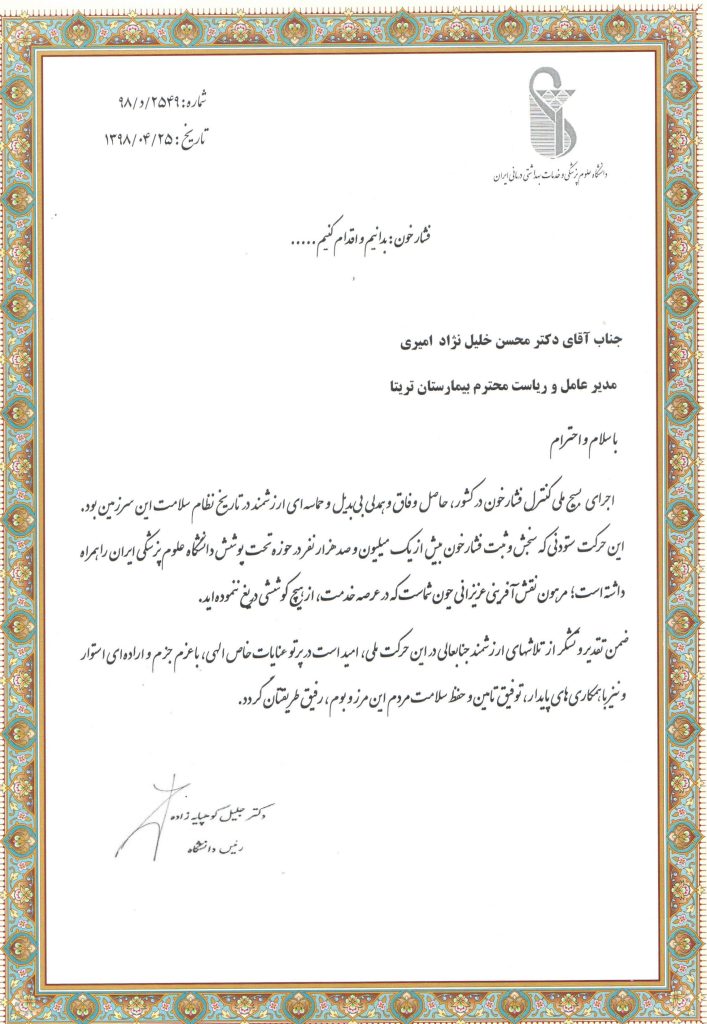 شماره: ۲۵۴۹/د/۹۸
تاریخ: ۱۳۹۸/۰۴/۲۵
دانشگاه علوم پزشکی و خدمات بهداشتی درمانی ایران
فشار خون: بدانیم و اقدام کنیم .....
جناب آقای دکتر محسن خلیل نژاد امیری
مدیر عامل و ریاست محترم بیمارستان تریتا
با سلام و احترام
اجرای بسیج ملی کنترل فشار خون در کشور، حاصل وفاق و همدلی بی‌بدیل و حماسه ای ارزشمند در تاریخ نظام سلامت این سرزمین بود.
این حرکت ستودنی که سنجش و ثبت فشار خون بیش از یک میلیون و صد هزار نفر در حوزه تحت پوشش دانشگاه علوم پزشکی ایران را همراه
داشته است؛ مرهون نقش آفرینی عزیزانی چون شماست که در عرصه خدمت، از هیچ کوششی دریغ ننموده‌اید.
ضمن تقدیر و تشکر از تلاشهای ارزشمند جنابعالی در این حرکت ملی، امید است در پرتو عنایات خاص الهی، با عزم جزم و اراده ای استوار
و نیز با همکاری های پایدار، توفیق تامین و حفظ سلامت مردم این مرز و بوم، رفیق طریقتان گردد.
دکتر جلیل کوهپایه زاده
رئیس دانشگاه